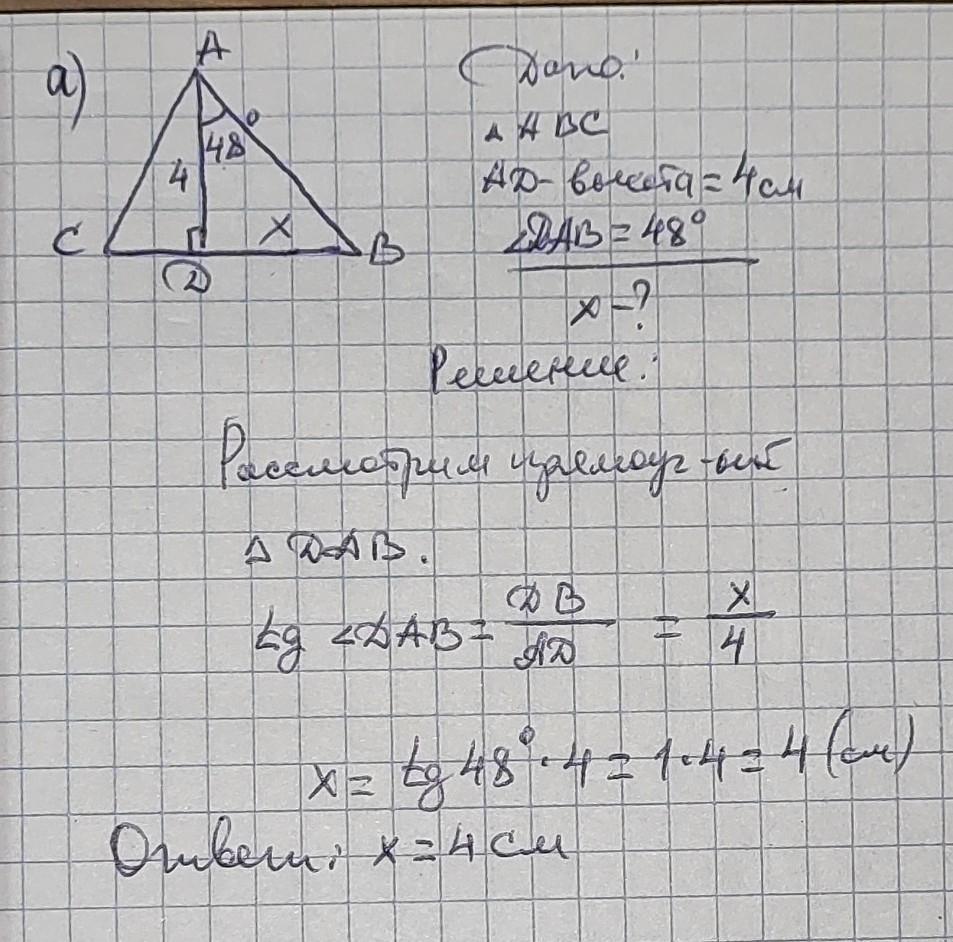 а)
A
48°
4
x
C
D
B
Дано:
△ ABC
AD - высота = 4 см
∠DAB = 48°
x - ?
Решение:
Рассмотрим прямоуг-ый
△ DAB.
tg ∠DAB = DB/AD = x/4
x = tg 48° · 4 = 1 · 4 = 4 (см)
Ответ: x = 4 см